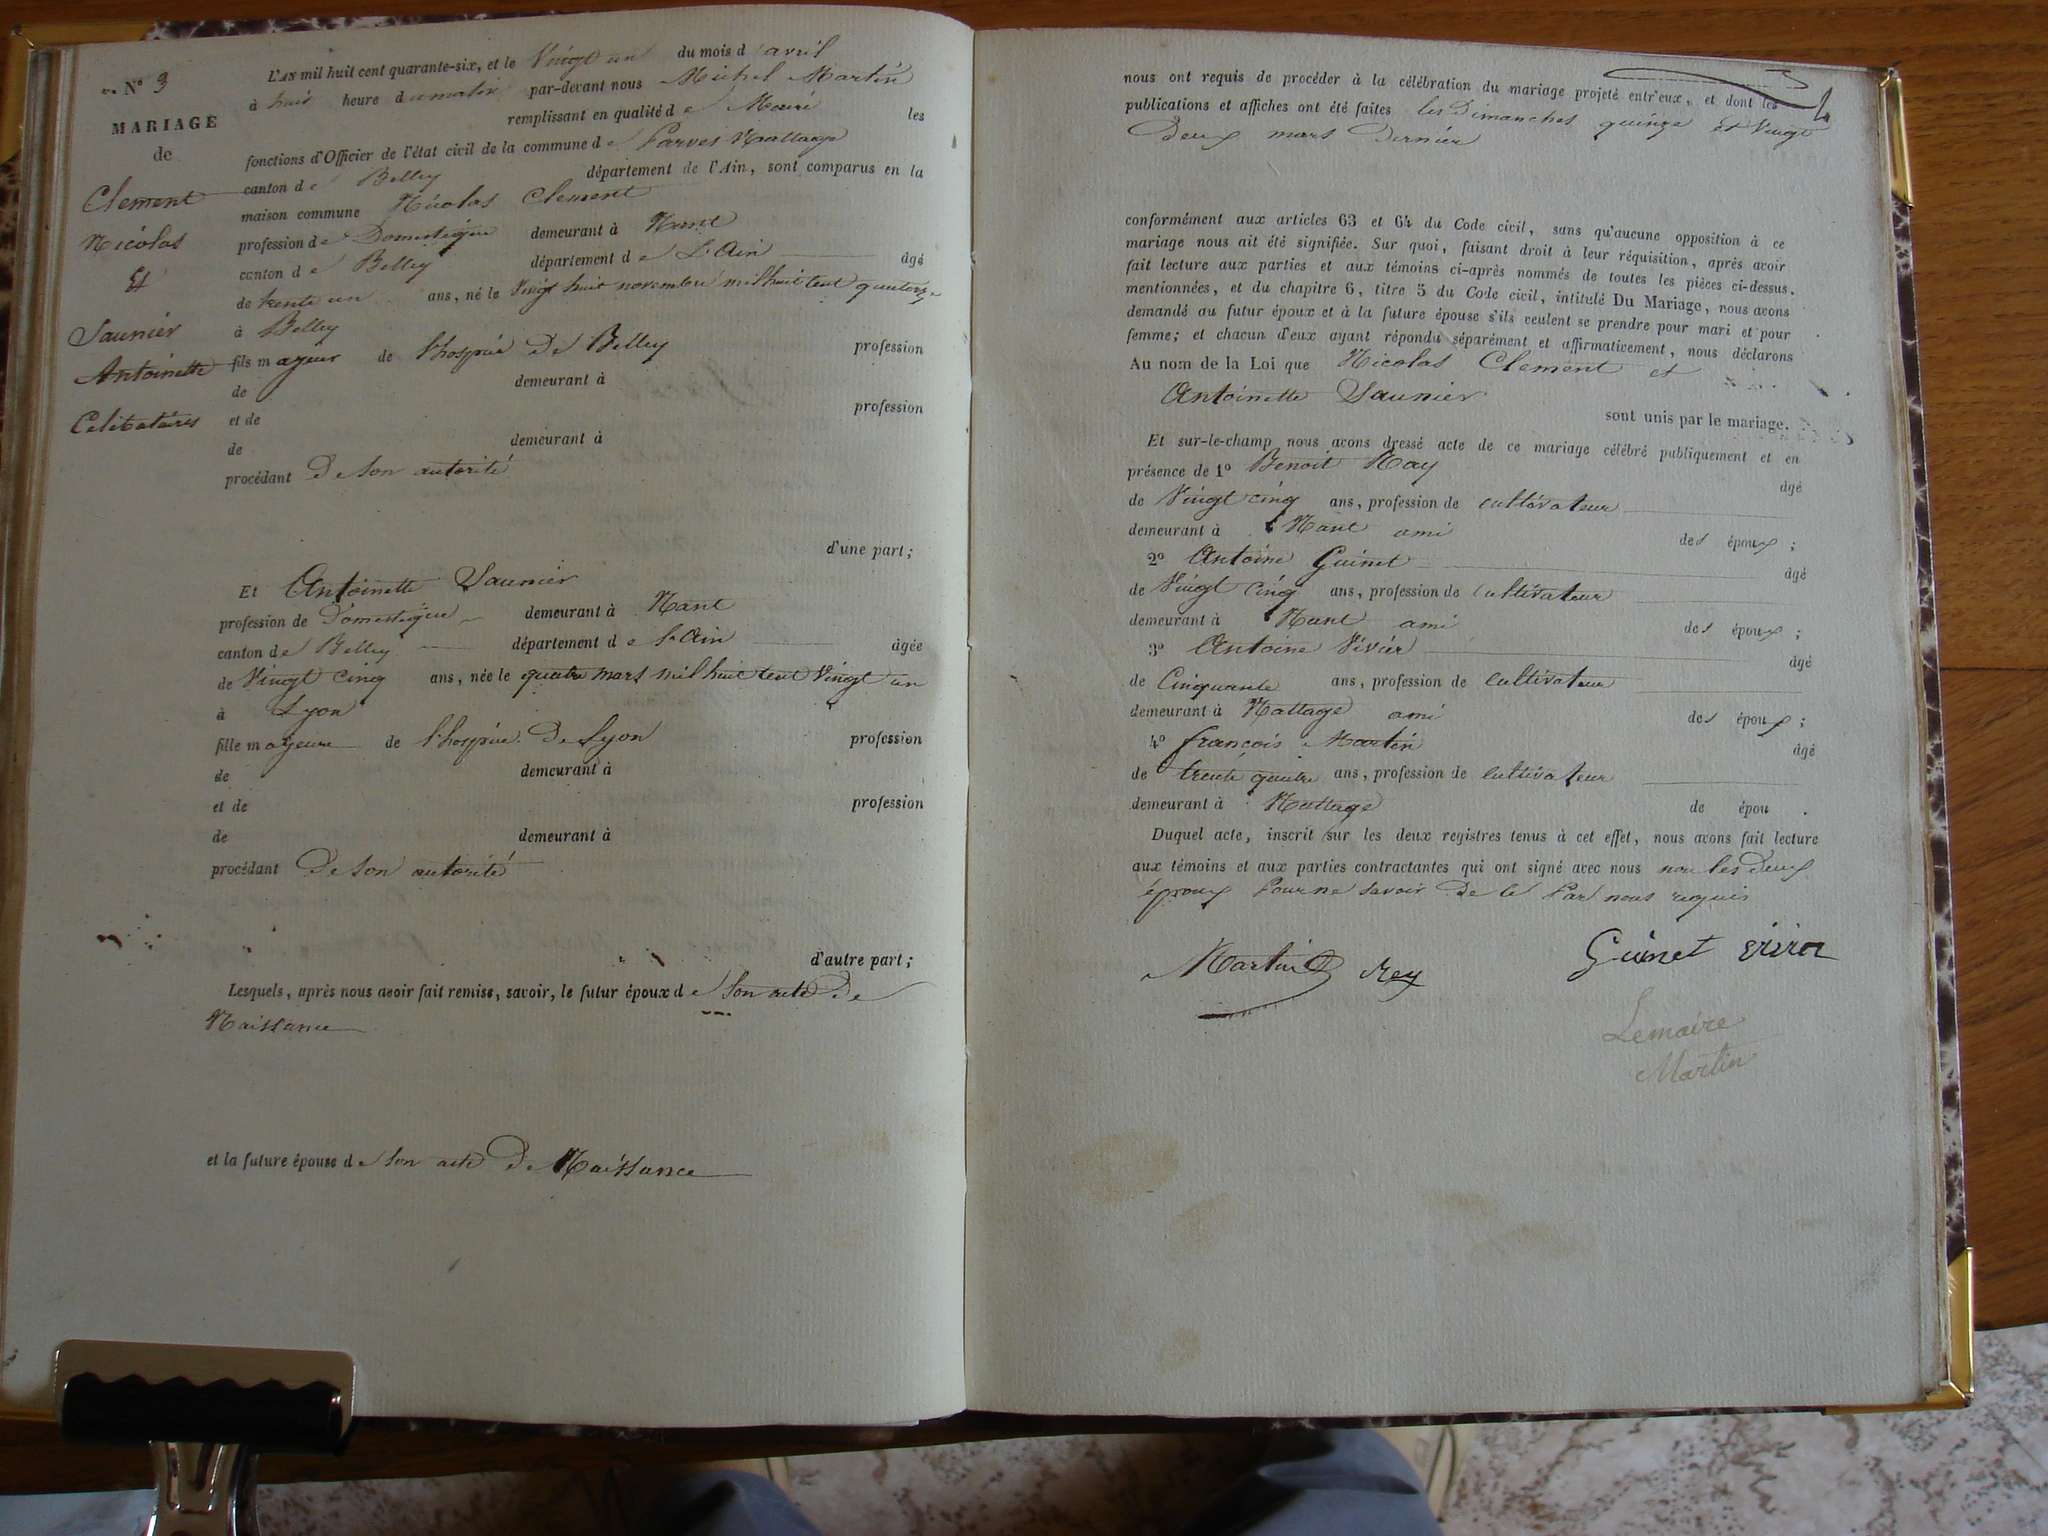 N° 3
MARIAGE
de
Clement
Nicolas
Et
Saunier
Antoinette
Celibataires
L'AN mil huit cent quarante-six, et le Vingt un du mois d avril
à huit heure du matin par-devant nous Michel Martin
remplissant en qualité de Maire les
fonctions d'Officier de l'état civil de la commune de Parves Nattage
canton de Belley département de l'Ain, sont comparus en la
maison commune Nicolas Clement
profession de Domestique demeurant à Nant
canton de Belley département de L'Ain âgé
de trente un ans, né le Vingt huit novembre mil huit cent quatorze
à Belley
fils mayeur de l'hospice De Belley profession
de demeurant à
et de profession
de demeurant à
procédant De Son autorité
d'une part;
Et Antoinette Saunier
profession de Domestique demeurant à Nant
canton de Belley département de l'Ain âgée
de Vingt cinq ans, née le quatre mars mil huit cent Vingt un
à Lyon
fille mayeure de l'hospice De Lyon profession
de demeurant à
et de profession
de demeurant à
procédant De Son autorité
d'autre part;
Lesquels, après nous avoir fait remise, savoir, le futur époux de Son acte De
Naissance
et la future épouse de Son acte De Naissance
nous ont requis de procéder à la célébration du mariage projeté entr'eux, et dont les
publications et affiches ont été faites les Dimanches quinze et Vingt
Deux mars Dernier
conformément aux articles 63 et 64 du Code civil, sans qu'aucune opposition à ce
mariage nous ait été signifiée. Sur quoi, faisant droit à leur réquisition, après avoir
fait lecture aux parties et aux témoins ci-après nommés de toutes les pièces ci-dessus.
mentionnées, et du chapitre 6, titre 5 du Code civil, intitulé Du Mariage, nous avons
demandé au futur époux et à la future épouse s'ils veulent se prendre pour mari et pour
femme; et chacun d'eux ayant répondu séparément et affirmativement, nous déclarons
Au nom de la Loi que Nicolas Clement et
Antoinette Saunier
sont unis par le mariage.
Et sur-le-champ nous avons dressé acte de ce mariage célébré publiquement et en
présence de 1° Benoit Ray âgé
de Vingt cinq ans, profession de cultivateur
demeurant à Nant ami des époux;
2° Antoine Guinet âgé
de Vingt cinq ans, profession de Cultivateur
demeurant à Nant ami des époux;
3° Antoine Vivier âgé
de Cinquante ans, profession de cultivateur
demeurant à Nattage ami des époux;
4° françois Martin âgé
de trente quatre ans, profession de cultivateur
demeurant à Nattage de épou .
Duquel acte, inscrit sur les deux registres tenus à cet effet, nous avons fait lecture
aux témoins et aux parties contractantes qui ont signé avec nous non les Deux
époux Pour ne Savoir De ce Par nous requis
Martin Rey Guinet vivier
Lemaire
Martin